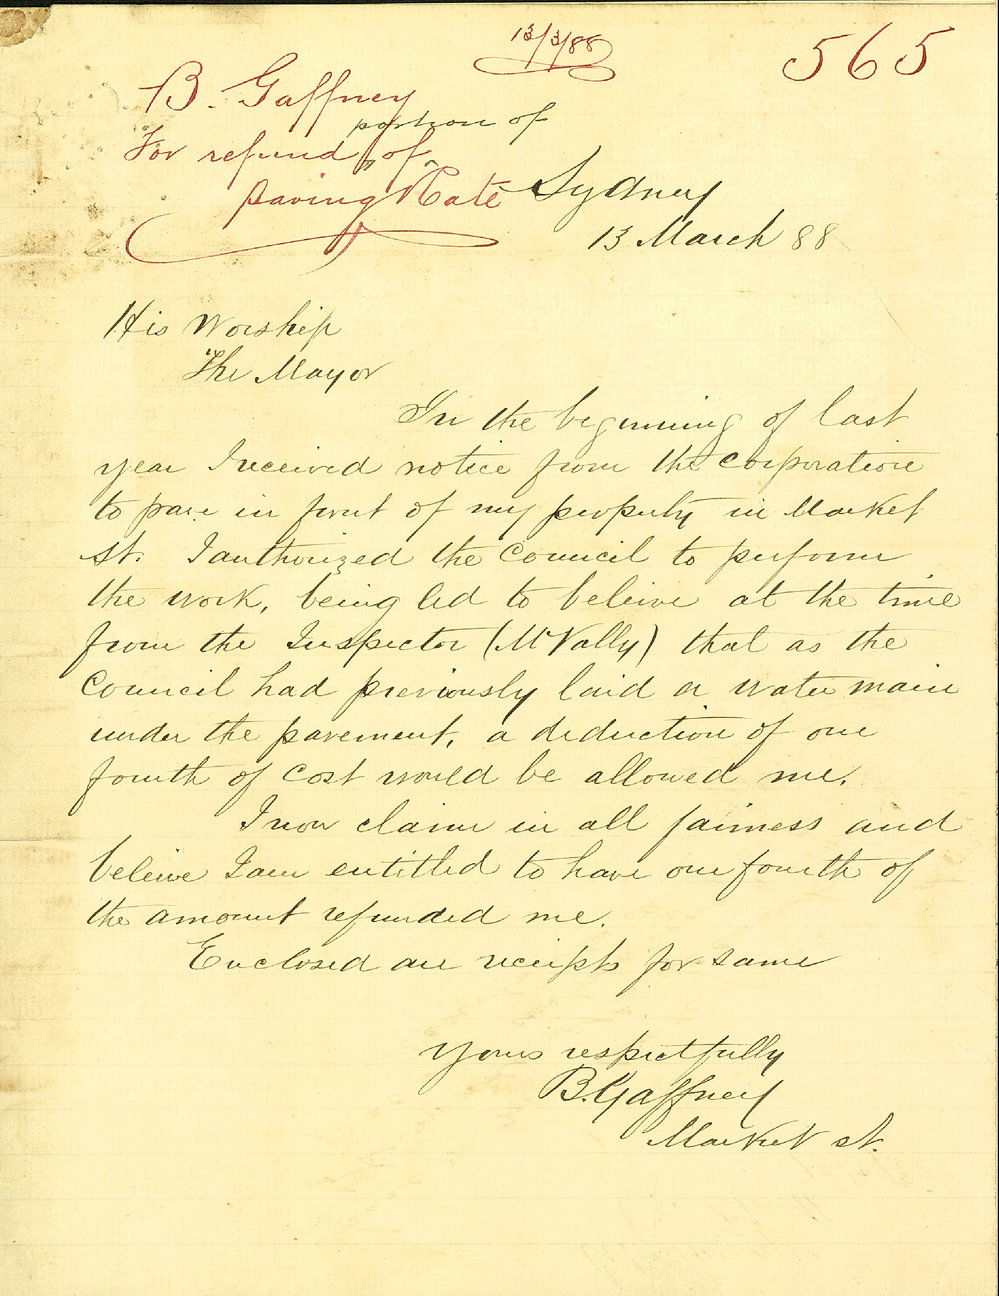 13/3/88
565
B. Gaffney
portion of
For refund of
paving Rate
Sydney
13 March 88
His Worship
The Mayor
In the beginning of last
year I received notice from the Corporation
to pave in front of my property in Market
St. I authorized the Council to perform
the work, being led to beleive at the time
from the Inspector (McNally) that as the
Council had previously laid a water main
under the pavement, a deduction of one
fourth of cost would be allowed me.
I now claim in all fairness and
beleive I am entitled to have one fourth of
the amount refunded me.
Enclosed are receipts for same
Yours respectfully
B. Gaffney
Market St.